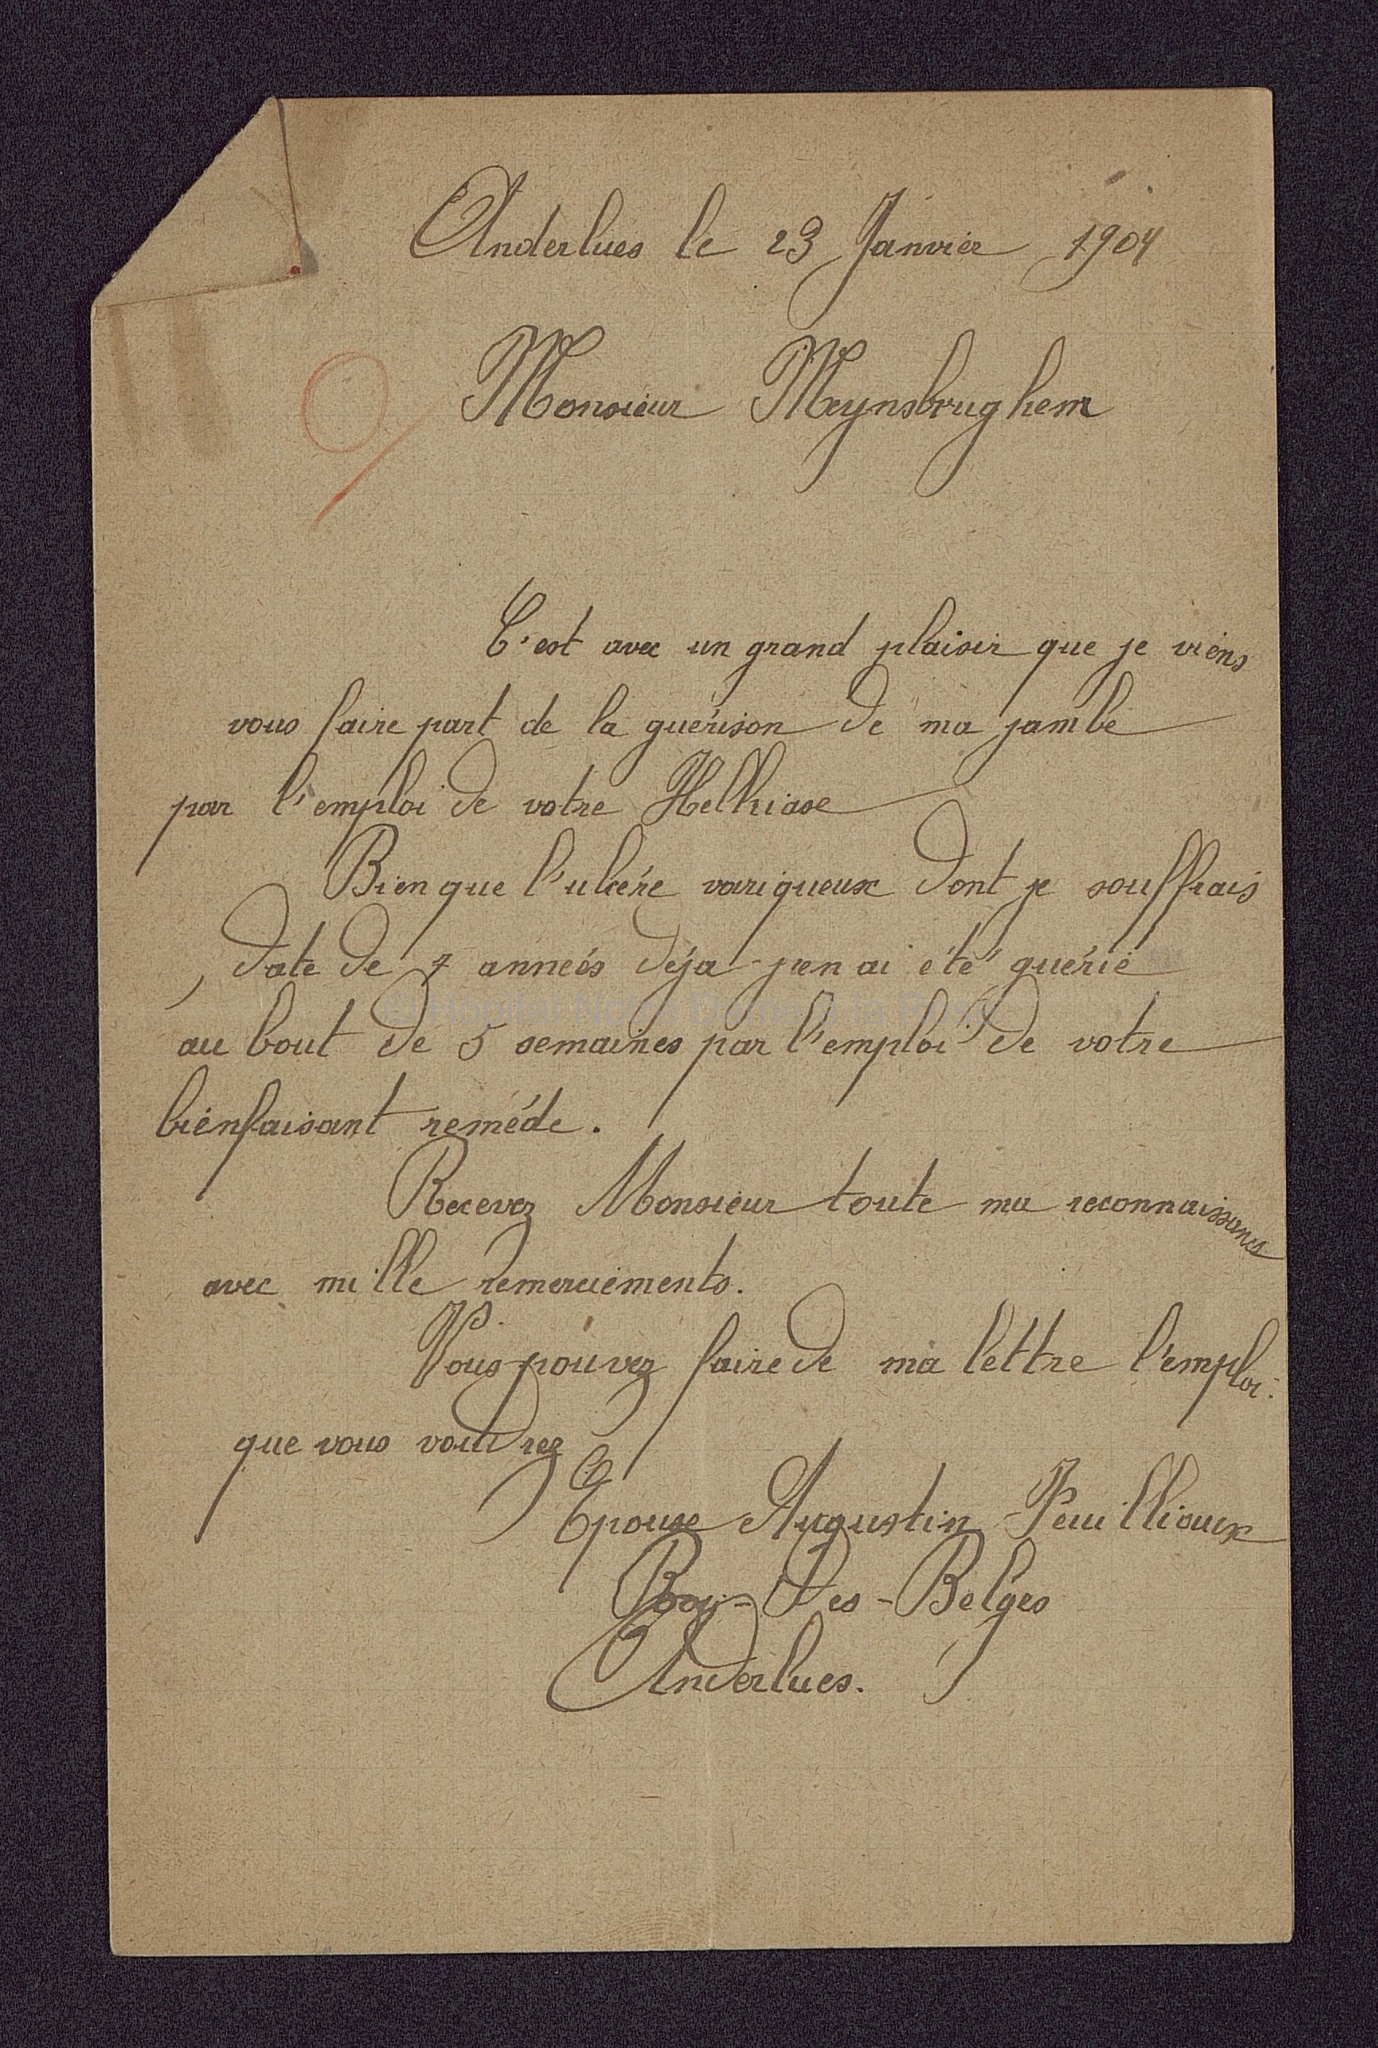 Anderlues le 23 Janvier 1904
Monsieur Meynsbrughem
C'est avec un grand plaisir que je viens
vous faire part de la guérison de ma jambe
par l'emploi de votre Helkiase
Bien que l'ulcére variqueux dont je souffrais
date de 4 années déja j'en ai été guérie
au bout de 5 semaines par l'emploi de votre
bienfaisant reméde.
Recevez Monsieur toute ma reconnaissance
avec mille remerciements.
Vous pouvez faire de ma lettre l'emploi
que vous voudrez
Epouse Augustin
Roy-des-Belges
Anderlues.
Hôpital Notre Dame à la Rose